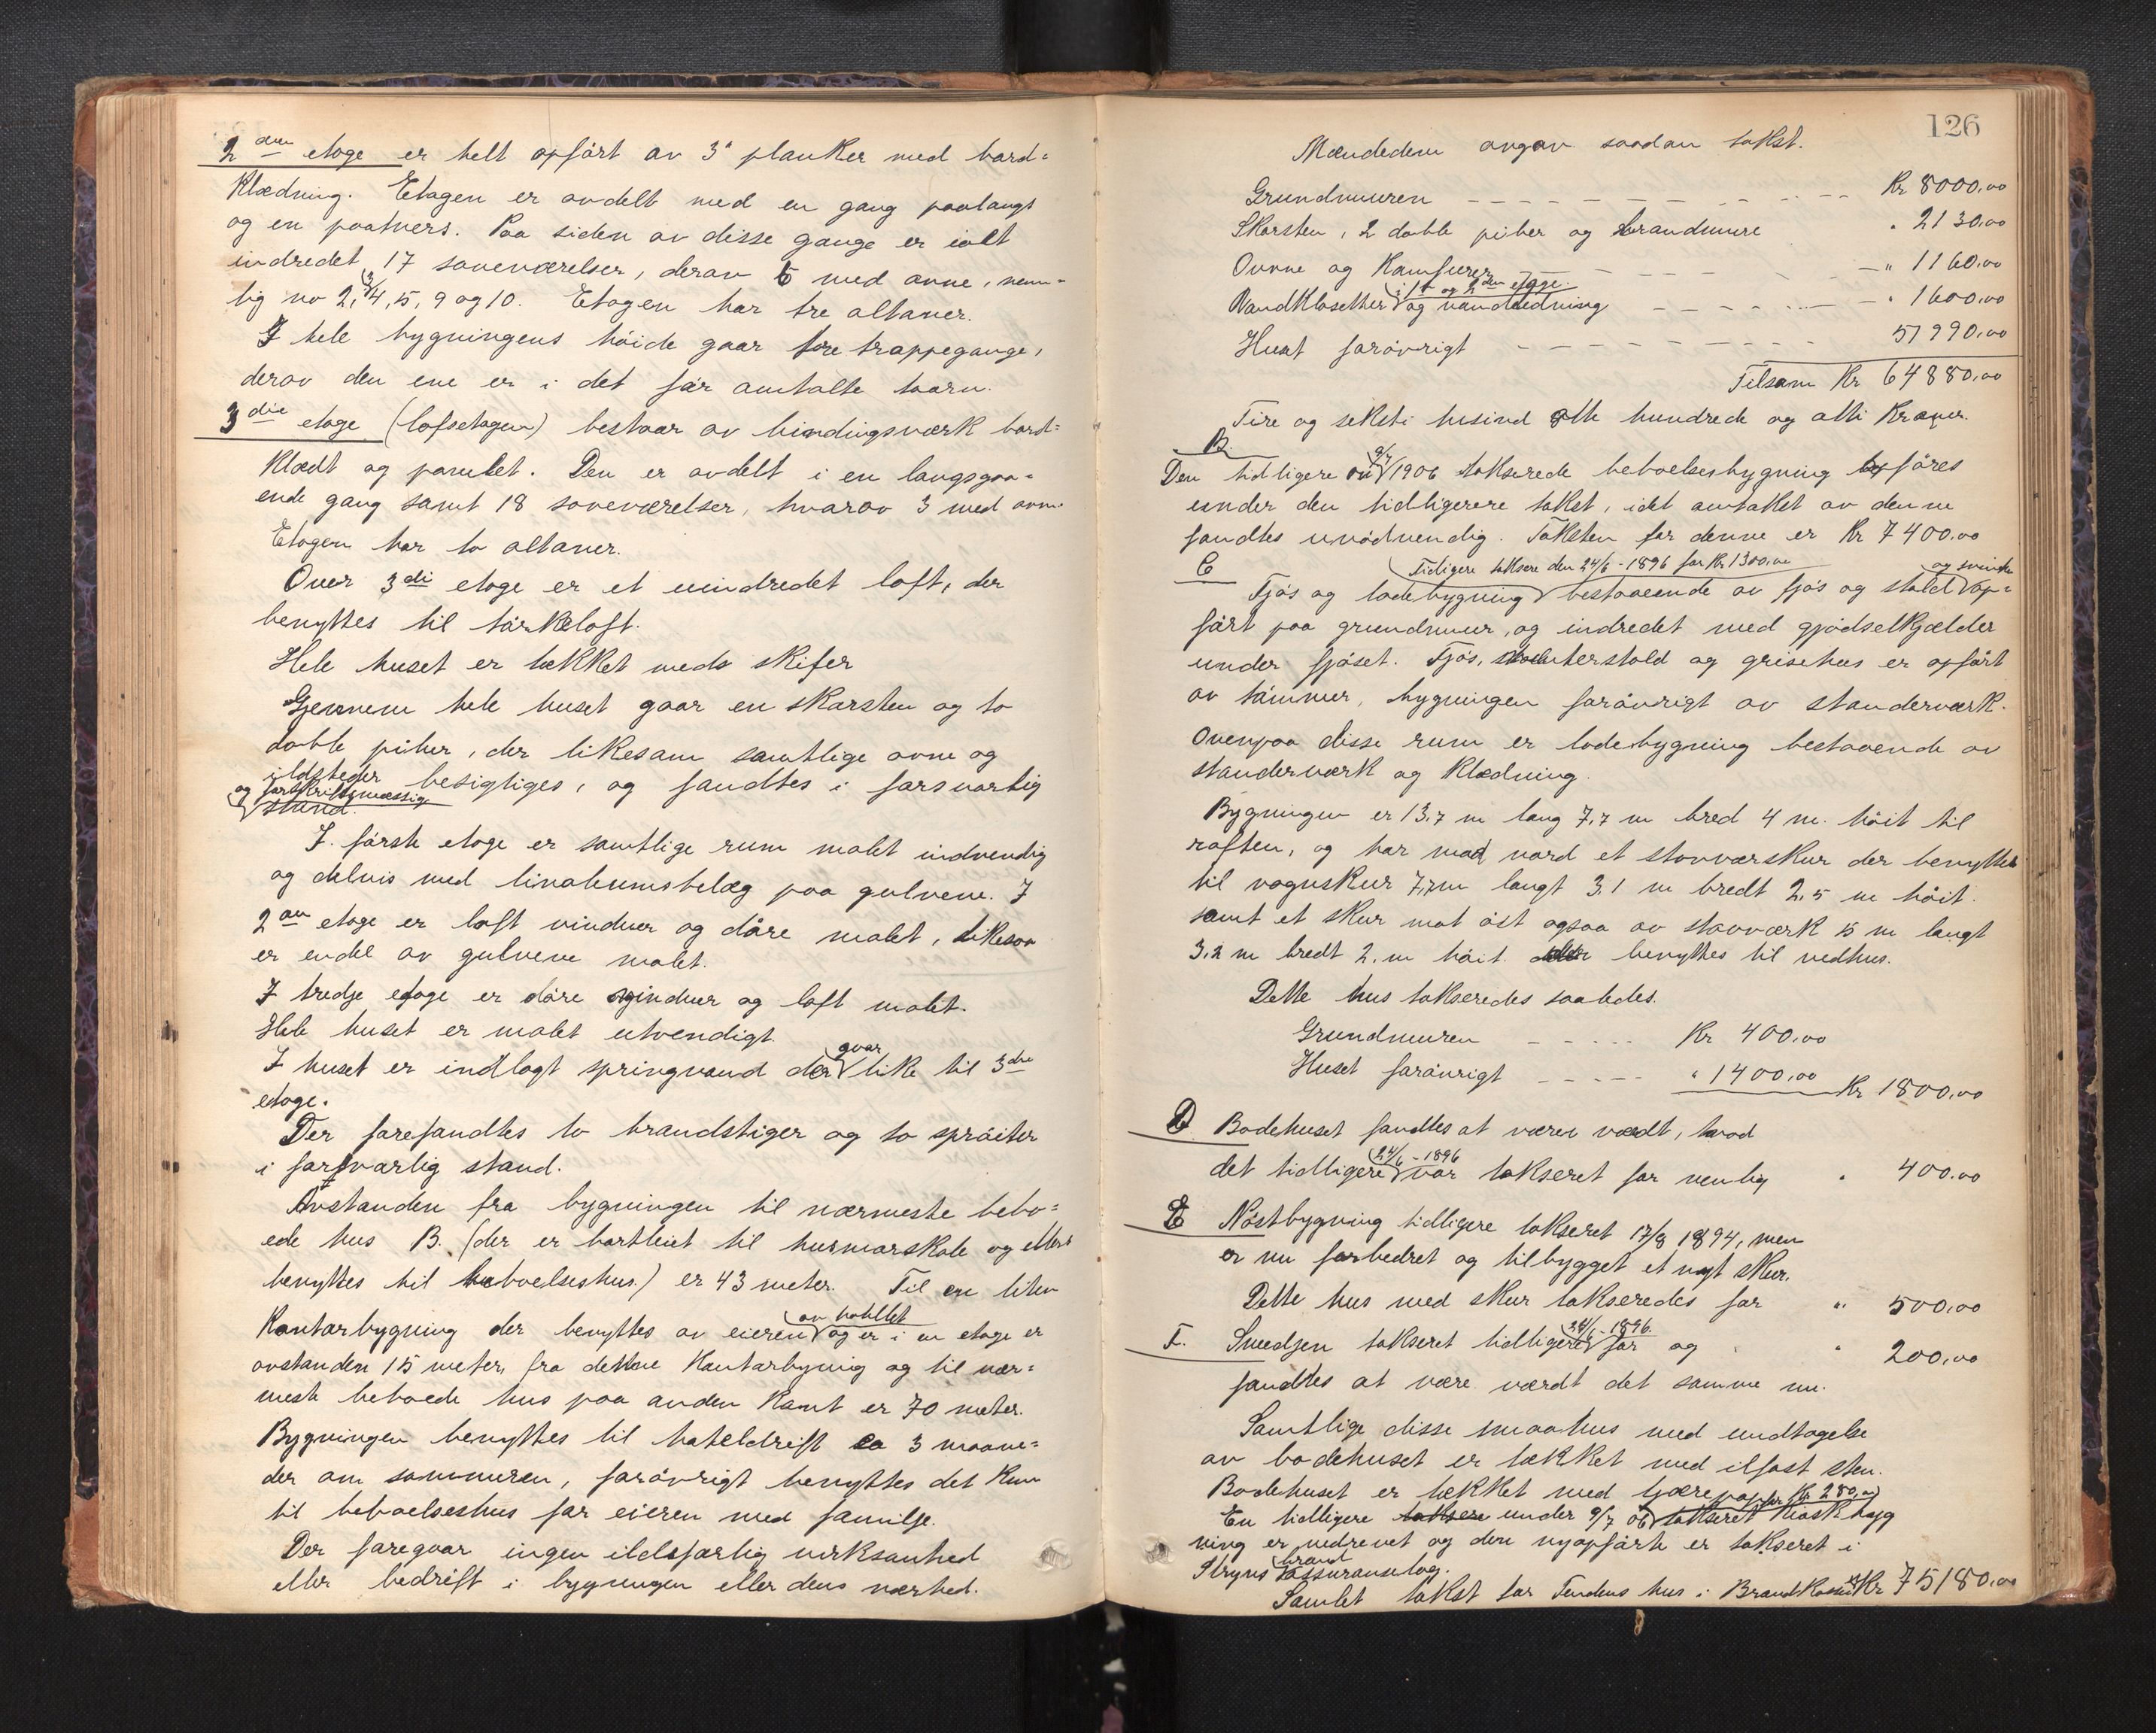 2den etage er helt opført av 3" planker med bord-
klædning. Etagen er avdelt med en gang paalangs
og en paatvers. Paa siden av disse gange er ialt
indredet 17 soveværelser, derav 6 med ovne, nem-
lig no 2, 3, 4, 5, 9 og 10. Etagen har tre altaner.
I hele bygningens høide gaar tre trappegange,
derav den ene er i det før omtalte taarn.
3die etage (lofsetagen) bestaar av bindingsværk bord-
klædt og panelet. Den er avdelt i en langsgaa-
ende gang samt 18 soveværelser, hvorav 3 med ovne.
Etagen har to altaner.
Over 3di etage er et uindredet loft, der
benyttes til tørkeloft.
Hele huset er tækket med skifer
Gjennem hele huset gaar en skorsten og to
doble piber, der likesom samtlige ovne og
ildsteder besigtiges, og fandtes i forsvarlig
og forskriftsmæssig
stand.
I første etage er samtlige rum malet indvendig
og delvis med linoleumsbelæg paa gulvene. I
2den etage er loft vinduer og døre malet, likesom
er endel av gulvene malet.
I tredje etage er døre vinduer og loft malet.
Hele huset er malet utvendigt.
I huset er indlagt springvand der gaar like til 3die
etage.
Der forefandtes to brandstiger og to sprøiter
i forsvarlig stand.
Avstanden fra bygningen til nærmeste bebo-
ede hus B. (der er bortleiet til husmorskole og ellers
benyttes til beboelseshus) er 43 meter. Til en liten
kontorbygning der benyttes av eieren av hotellet og er i en etage er
avstanden 15 meter, fra denne kontorbygnig og til nær-
meste beboede hus paa anden kant er 70 meter.
Bygningen benyttes til hoteldrift ca 3 maane-
der om sommeren, forøvrigt benyttes det kun
til beboelseshus for eieren med familje.
Der foregaar ingen ildsfarlig virksomhed
eller bedrift i bygningen eller dens nærhed.
126
Mændedem avgav saadan takst.
Grundmuren Kr 8000,00
Skorsten, 2 doble piber og brandmure " 2130,00
Ovne og Kamfurer " 1160,00
Vandklosetter i 1ste og 2den etage og vandledning " 1600,00
Huset forøvrigt 51990,00
Tilsam Kr 64880,00
Fire og seksti tusind otte hundrede og otti Kroner.
B
Den tidligere 9/7 1906 takserede beboelsesbygning opføres
under den tidligerere takst, idet omtakst av denne
fandtes unødvendig. Taksten for denne er Kr 7400,00
C
Tidligere taksere den 24/6 - 1896 for Kr 1300,00
Fjøs og ladebygning bestaaende av fjøs og stald og svinhus op-
ført paa grundmur, og indredet med gjødselkjælder
under fjøset. Fjøs, stald og grisehus er opført
av tømmer, bygningen forøvrigt av standerværk.
Ovenpaa disse rum er ladebygning bestaaende av
standerværk og klædning.
Bygningen er 13,7 m lang 7,7 m bred 4 m. høit til
raften, og har mod nord et stavværskur der benyttes
til vognskur 7,7m langt 3,1 m bredt 2,5 m høit.
samt et skur mot øst ogsaa av stavværk 15 m langt
3,2 m bredt 2. m høit. der benyttes til vedhus.
Dette hus takseredes saaledes.
Grundmuren Kr 400,00
Huset forøvrigt " 1400,00 Kr 1800,00
D Bodehuset fandtes at være værdt, hvad
det tidligere 24/6 - 1896 var takseret for nemlig " 400.00
E Nøstbygning tidligere takseret 17/8 1894, men
er nu forbedret og tilbygget et nyt skur.
Dette hus med skur takseredes for " 500,00
F. Smedjen takseret tidligere 24/6 - 1896 for og " 200,00
fandtes at være værdt det samme nu.
Samtlige disse smaahus med undtagelse
av bodehuset er tækket med ilfast sten.
Bodehuset er tækket med tjærepap
En tidligere taksere under 9/7 06 for Kr 280,00 takseret kioskbyg
ning er nedrevet og den nyopførte er takseret i
Stryns brandassuranselag.
Samlet takst for Tendens hus i Brandkassen Kr 75180,00